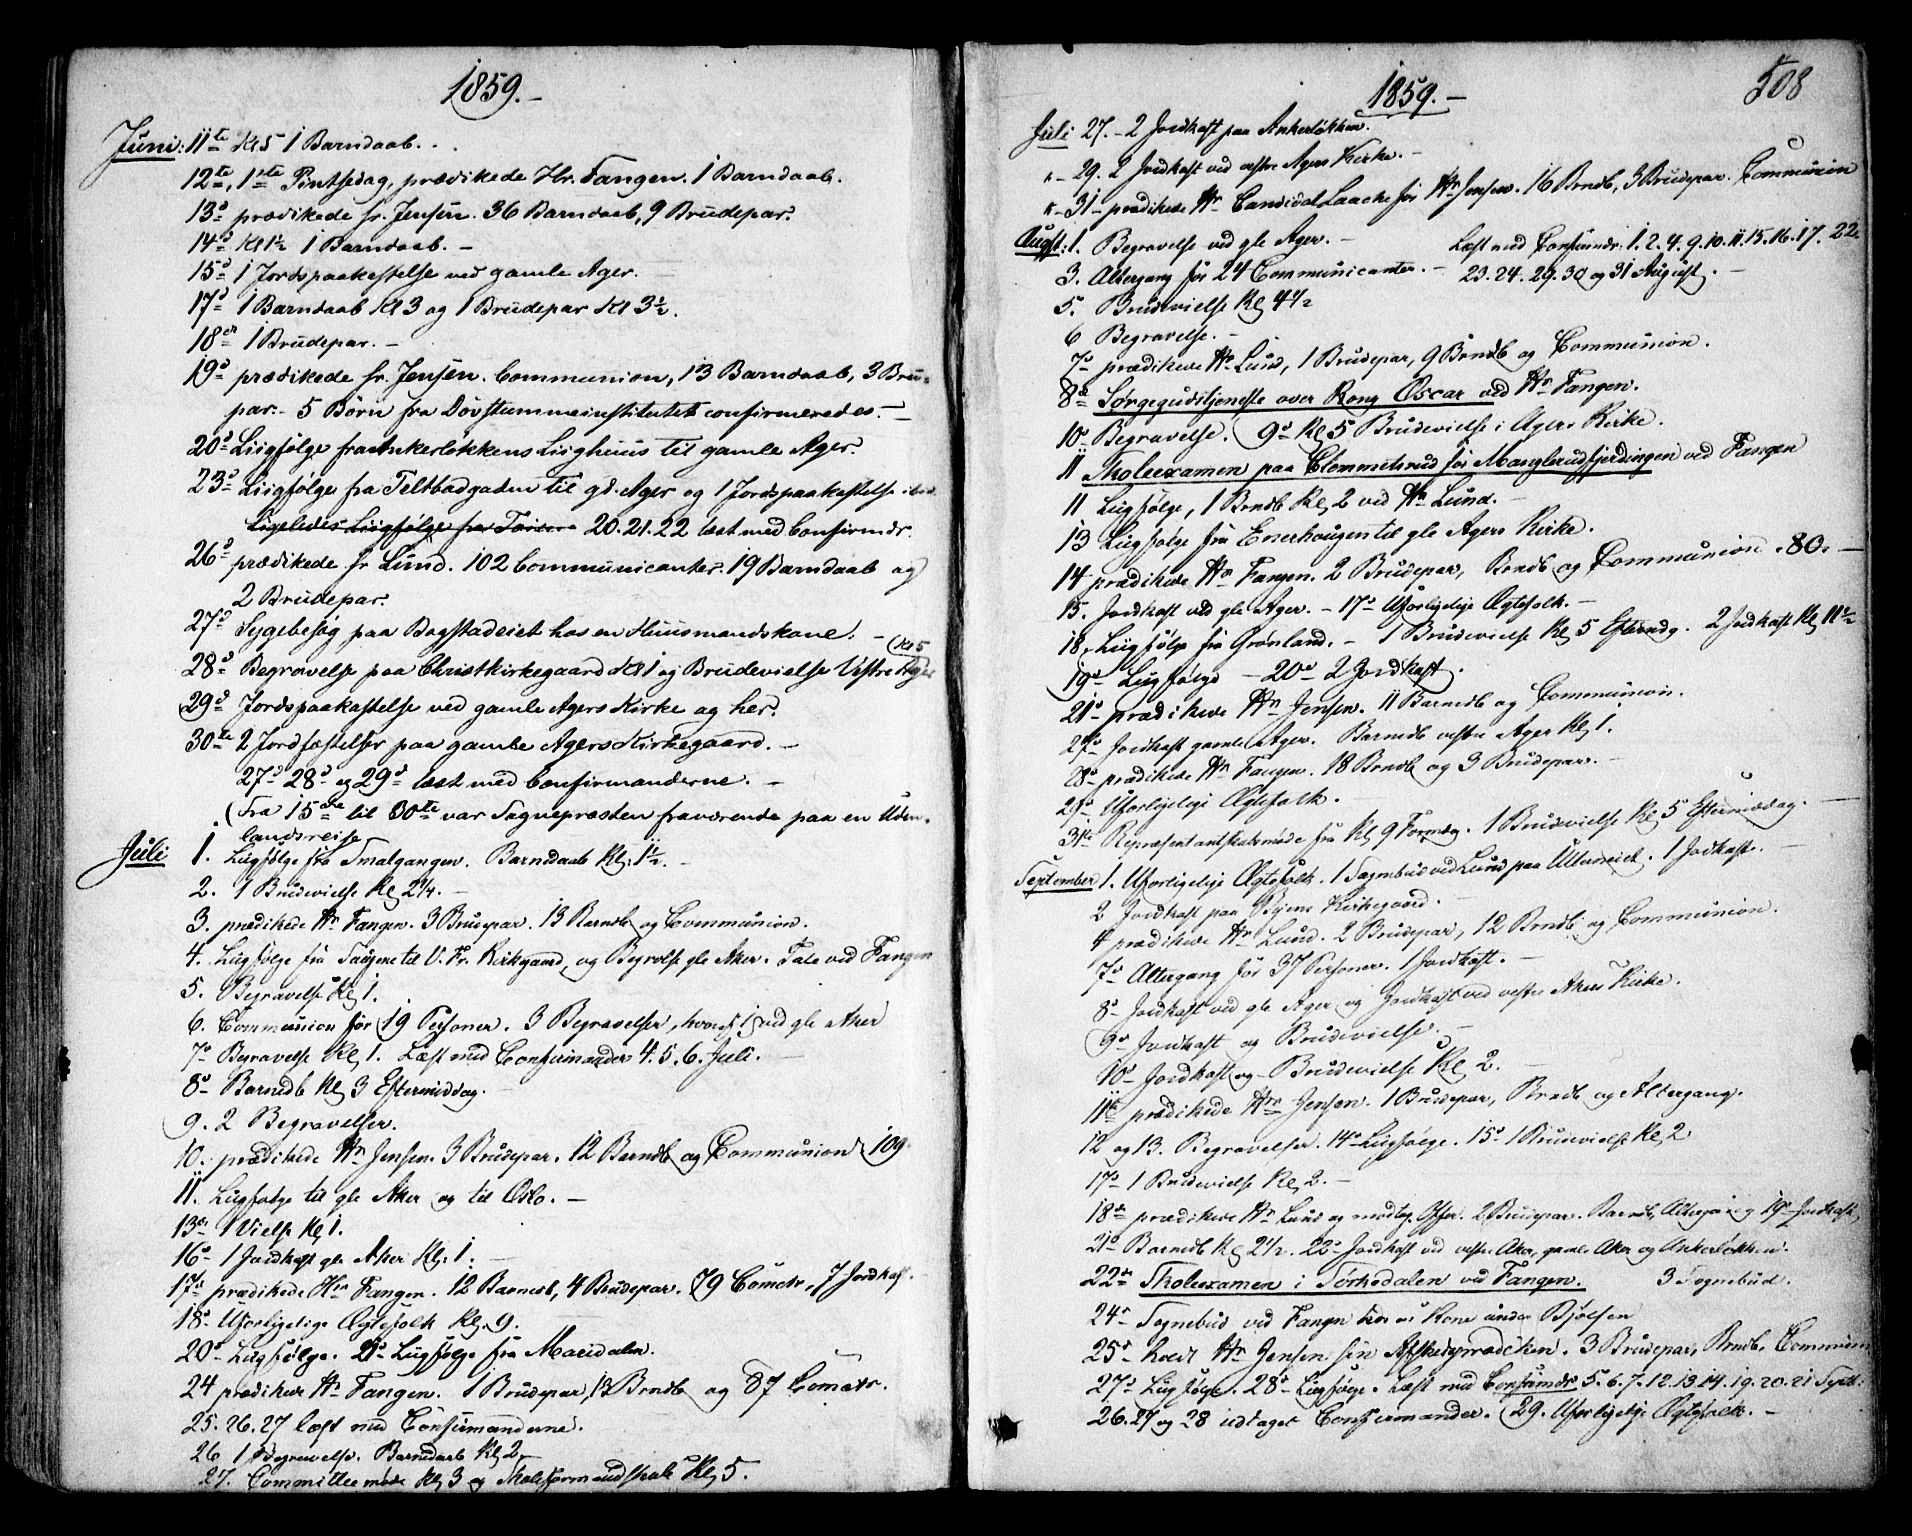 1859.
Juni: 11te Kl 5 1 Barndaab.
12te, 1ste Pintsedag, prædikede Hr. Fangen. 1 Barndaab.
13d prædikede hr. Jensen. 36 Barndaab, 9 Brudepar.
14d Kl 1½ 1 Barndaab. –
15d 1 Jordspaakastelse ved gamle Ager. –
17d 1 Barndaab Kl 3 og 1 Brudepar Kl 3½.
18de 1 Brudepar. –
19d prædikede hr. Jensen. Communion, 13 Barndaab, 3 Bru-
par. – 5 Børn fra Døvstummeinstitutet confirmeredes. –
20d Liigfølge fra Ankerløkkens Liighuus til gamle Ager.
23d Liigfølge fra Teltbodgaden til gl. Ager og 1 Jordspaakastelse ibid.
Ligeledes Liigfølge fra 20. 21. 22 læst med Confirmdr.
26d prædikede hr Lund. 102 Communicanter. 19 Barndaab og
2 Brudepar.
27d Sygebesøg paa Bogstadeiet hos en Huusmandskone. –
28d Begravelse paa Christkirkegaard Kl 1 og Brudevielse Vestre Ager Kl 5
29d Jordspaakastelse ved gamle Agers Kirke og her.
30te 2 Jordfæstelser paa gamle Agers Kirkegaard. –
27d 28d og 29d læst med Confirmanderne. –
(Fra 15de til 30te var Sognepræsten fraværende paa en Uden-
landsreise
Juli 1. Liigfølge fra Smalgangen. Barndaab Kl. 1½. –
2. 1 Brudevielse Kl 2¼. –
3. prædikede Hr Fangen. 3 Brudepar. 13 Barndb og Communion.
4. Liigfølge fra til V. Fr. Kirkgaard, og Begrvlse gle Aker. Tale ved Fangen
5. Begravelse Kl 1.
6. Communion for 19 Personer. 3 Begravelser, hvoraf 1 ved gle Aker
7d Begravelse Kl 1. Læst med Confirmander 4. 5. 6. Juli. –
8d Barndb Kl 3 Eftermiddag. –
9. 2 Begravelser.
10. prædikede Hr Jensen. 3 Brudepar. 12 Barndb og Communion 109.
11. Liigfølge til gle Aker og til Oslo. –
13de 1 Vielse Kl 1.
16d 1 Jordkast gle Aker Kl. 1. –
17de prædikede Hrr Fangen. 12 Barnedb, 4 Brudepar. 79 Comctr, 7 Jordkast. –
18d Uforligelige Ægtefolk Kl. 9.
20d Liigfølge. 21d Liigfølge fra Maridalen.
24 prædikede Hr Fangen. 1 Brudepar, 13 Brndb og 87 Comctr.
25. 26. 27 læst med Confirmanderne.
26 1 Begravelse. Barndaab Kl 2
27. Committeemøde Kl 3 og Skoleformandskab Kl 5.
508
1859. –
Juli 27. – 2 Jordkast paa Ankerløkken.
" – 29. 2 Jordkast ved vestre Agers Kirke. –
" – 31 – prædikede Hr Candidat Laache for Hr Jensen. 16 Brndb, 3 Brudepar. Communion
Augst: 1. Begravelse ved gle Ager. – Læst med Confirmdr: 1. 2. 4. 9. 10. 11. 15. 16. 17. 22.
3. Altergang for 24 Communicanter. – 23. 24. 29. 30 og 31 August. –
5. Brudevielse Kl 4½
6 Begravelse. –
7d prædikede Hr Lund, 1 Brudepar, 9 Brndb og Communion.
8de Sørgegudstjeneste over Kong Oscar ved Hr Fangen.
10d Begravelse. 9d Kl 5 Brudevielse i Agers Kirke.
11 Skoleexamen paa Clemmetsrud for Manglerudfjerdingen ved Fangen
11 Liigfølge, 1 Brndb Kl 2 ved Hr Lund. –
13 Liigfølge fra Enerhougen til gle Agers Kirke.
14 prædikede Hr Fangen. 2 Brudepar, Brndb og Communion. 80. –
15. Jordkast ved gle Ager. – 17d Uforligelige Ægtefolk. –
18. Liigfølge fra Grønland. – 1 Brudevielse Kl 5 Eftermdg. 2 Jordkast Kl 11½
19d Liigfølge – 20d 2 Jordkast.
21d prædikede Hr Jensen. 11 Barnedb og Communion.
27d Jordkast gamle Ager. Barnedb vestre Ager Kl 1.
28d prædikede Hr Fangen. 18 Brndb og 3 Brudepar. –
29d Uforligelige Ægtefolk. –
31te Repræsentantskabsmøde fra Kl 9 Formdg. 1 Brudevielse Kl 5 Eftermiddag. –
September 1. Uforligelige Ægtefolk. 1 Sognebud ved Lund paa Ullerneiet. 1 Jordkast. –
2 Jordkast paa Byens Kirkegaard. –
4 prædikede Hr Lund. 2 Brudepar, 12 Brndb og Communion.
7d Altergang for 37 Personer. 1 Jordkast. –
8d Jordkast ved gle Ager og Jordkast ved vestre Akers Kirke.
9d Jordkast og Brudevielse. –
10d Jordkast og Brudevielse Kl 2. –
11te prædikede Hrr Jensen. 1 Brudepar, Brndb og Altergang.
12 og 13. Begravelser. 14d Liigfølge. 15d 1 Brudevielse Kl 2
17d 1 Brudevielse Kl. 2. –
18de prædikede Hr Lund og modtog Offer. 2 Brudepar. Barndb, Altergang 19d Jordkast,
21d Barnedb Kl 2½. 22d Jordkast ved vestre Aker, gamle Aker og Ankerløkken.
22de Skoleexamen i Sørkedalen ved Fangen. 3 Sognebud.
24d Sognebud ved Fangen hos en Kone under Bjølsen
25d holdt Hr Jensen sin Afskedsprædiken. 3 Brudepar, Brndb. Communion
27d Liigfølge. 28d Liigfølge. Læst med Confirmdr 5. 6. 7. 12. 13. 14. 19. 20. 21 Septb:
26. 27 og 28 udtaget Confirmander. 29. Uforligelige Ægtefolk. –